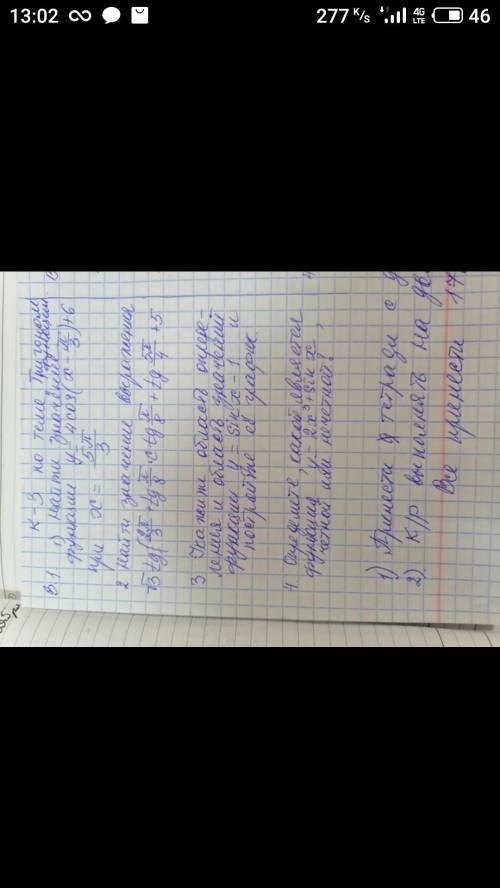 13:02
277 K/s
4G
LTE
46
К-3 по теме Тригоном. функции
В.1 1) найти значение
функции y = 4cos(x - π/3)+6
при x = 5π/3
2 найти значение выражения
tg π/8 · ctg π/8 + tg 5π/4 + 5
3 Укажите область опреде-
ления и область значений
функции y = sin x - 1 и
постройте её график.
4 Определите, какой является
функция y = 2x³ + sin x
чётной или нечётной?
1) Принести тетради с
2) К/р выполнять на
Все принести 17